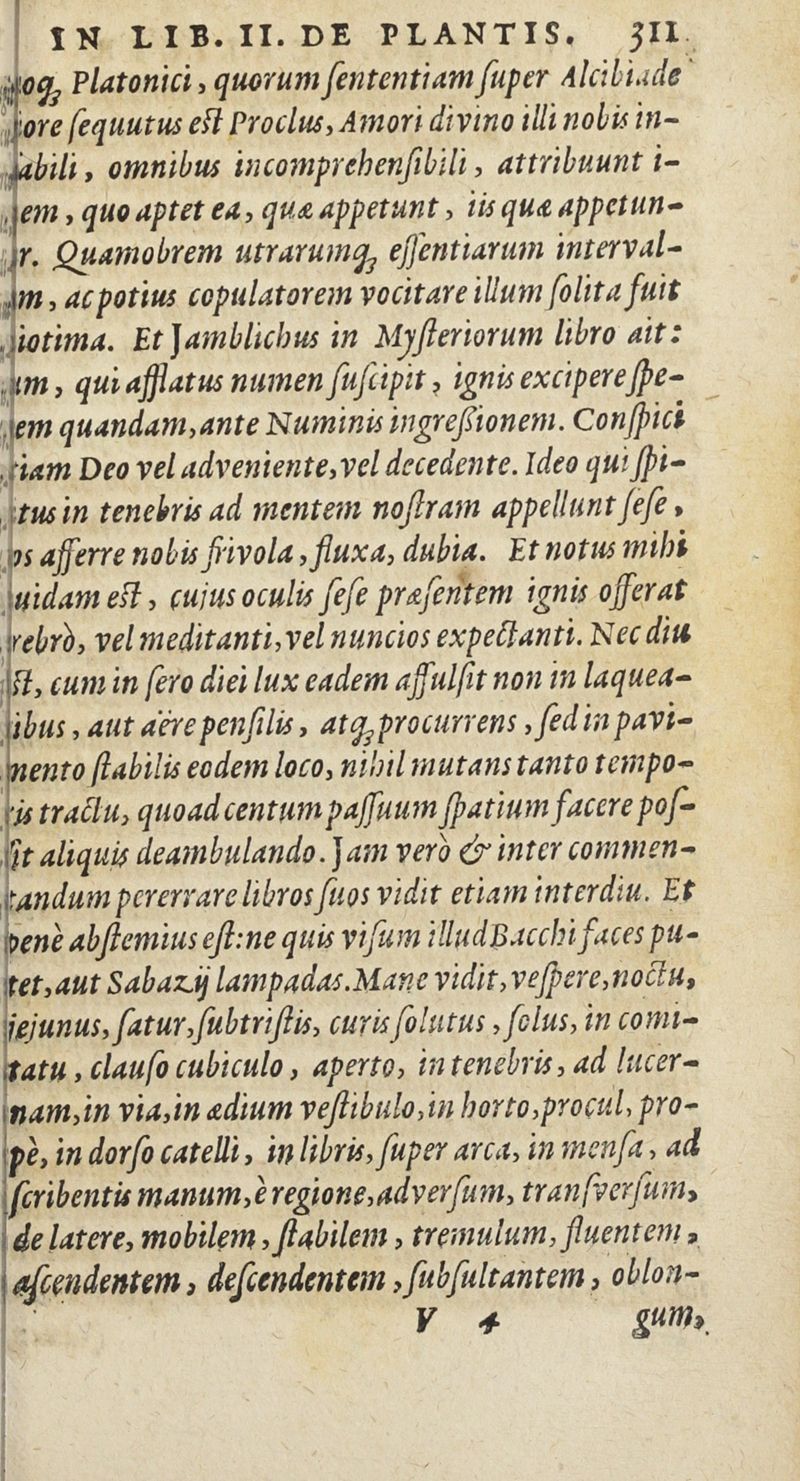 IN LIB. II. DE PLANTIS. 311
Platonici, quorum ſententiam ſuper Alcibiade
ſequutus eſt Proclus, Amori divino illi nobis in-
omnibus incomprehenſibili, attribuunt i-
quo aptet ea, quæ appetunt, iis quæ appetun-
Quamobrem utrarumq; eſſentiarum interval-
ac potius copulatorem vocitare illum ſolita fuit
Et Jamblichus in Myſteriorum libro ait:
qui afflatus numen ſuſcipit, ignis excipere ſpe-
quandam, ante Numinis ingreſsionem. Conſpici
Deo vel adveniente, vel decedente. Ideo qui ſpi-
in tenebris ad mentem noſtram appellunt ſeſe,
afferre nobis frivola, fluxa, dubia. Et notus mihi
uidam eſt, cujus oculis ſeſe præſentem ignis offerat
rebrò, vel meditanti, vel nuncios expectanti. Nec diu
cum in ſero diei lux eadem affulſit non in laquea-
ibus, aut aëre penſilis, atq; procurrens, ſed in pavi-
mento ſtabilis eodem loco, nihil mutans tanto tempo-
ris tractu, quoad centum paſſuum ſpatium facere poſ-
ſit aliquis deambulando. Jam verò & inter commen-
tandum pererrare libros ſuos vidit etiam interdiu. Et
bene abſtemius eſt: ne quis viſum illud Bacchi faces pu-
tet, aut Sabazij lampadas. Mane vidit, veſpere, noctu,
jejunus, ſatur, ſubtriſtis, curis ſolutus, ſolus, in comi-
tatu, clauſo cubiculo, aperto, in tenebris, ad lucer-
nam, in via, in ædium veſtibulo, in horto, procul, pro-
pè, in dorſo catelli, in libris, ſuper arca, in menſa, ad
ſcribentis manum, è regione, adverſum, tranſverſum,
de latere, mobilem, ſtabilem, tremulum, fluentem,
aſcendentem, deſcendentem, ſubſultantem, oblon-
V 4 gum,